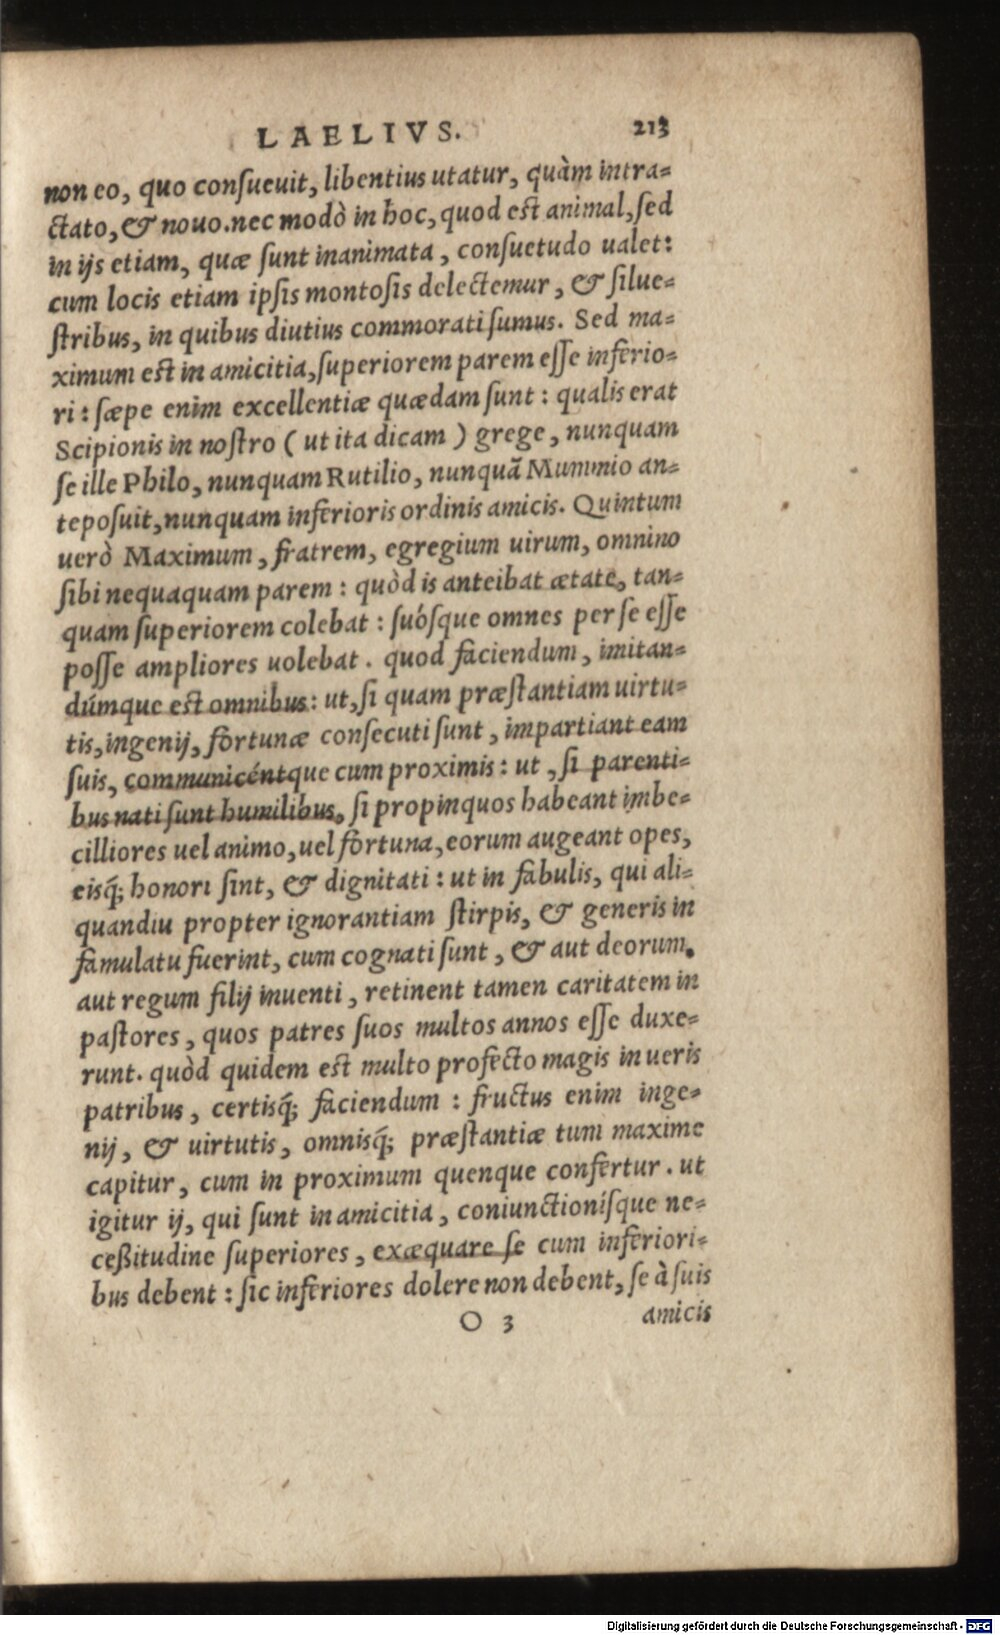 LAELIVS. 213
non eo, quo conſueuit, libentius utatur, quàm intra⸗
ctato, & nouo. nec modò in hoc, quod est animal, ſed
in ijs etiam, quæ ſunt inanimata, conſuetudo ualet:
cum locis etiam ipſis montoſis delectemur, & ſilue⸗
ſtribus, in quibus diutius commorati ſumus. Sed ma⸗
ximum est in amicitia, ſuperiorem parem eſſe inferio⸗
ri: ſæpe enim excellentiæ quædam ſunt: qualis erat
Scipionis in noſtro (ut ita dicam) grege, nunquam
ſe ille Philo, nunquam Rutilio, nunquã Mummio an⸗
tepoſuit, nunquam inferioris ordinis amicis. Quintum
uerò Maximum, fratrem, egregium uirum, omnino
ſibi nequaquam parem: quòd is anteibat ætate, tan⸗
quam ſuperiorem colebat: ſuóſque omnes per ſe eſſe
poſſe ampliores uolebat. quod faciendum, imitan⸗
dúmque est omnibus: ut, ſi quam præſtantiam uirtu⸗
tis, ingenij, fortunæ conſecuti ſunt, impartiant eam
ſuis, communicéntque cum proximis: ut, ſi parenti⸗
bus nati ſunt humilibus, ſi propinquos habeant imbe⸗
cilliores uel animo, uel fortuna, eorum augeant opes,
eisq́; honori ſint, & dignitati: ut in fabulis, qui ali⸗
quandiu propter ignorantiam ſtirpis, & generis in
famulatu fuerint, cum cognati ſunt, & aut deorum,
aut regum filij inuenti, retinent tamen caritatem in
paſtores, quos patres ſuos multos annos eſſe duxe⸗
runt. quòd quidem est multo profecto magis in ueris
patribus, certisq́; faciendum: fructus enim inge⸗
nij, & uirtutis, omnisq́; præſtantiæ tum maxime
capitur, cum in proximum quenque confertur. ut
igitur ij, qui ſunt in amicitia, coniunctioníſque ne⸗
ceßitudine ſuperiores, exæquare ſe cum inferiori⸗
bus debent: ſic inferiores dolere non debent, ſe à ſuis
O 3 amicis
Digitalisierung gefördert durch die Deutsche Forschungsgemeinschaft - DFG